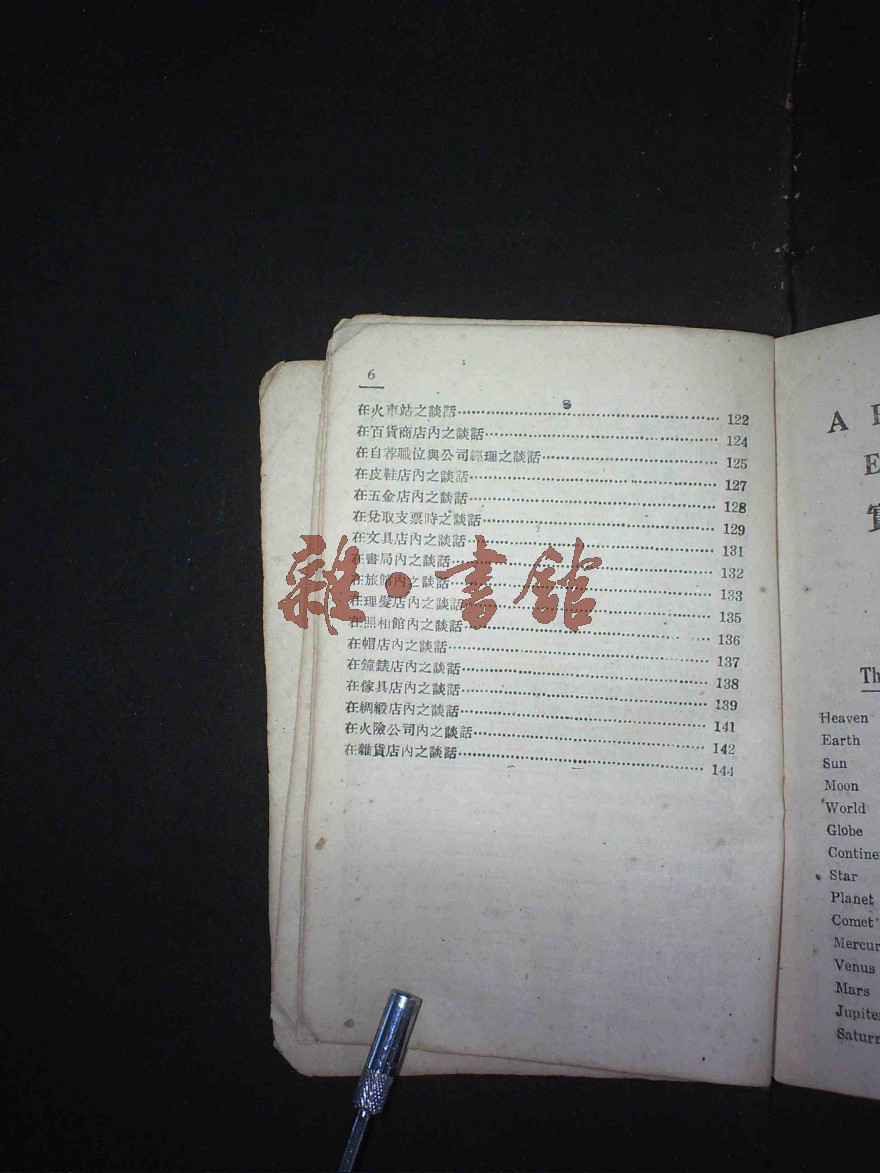 6
在火車站之談話 122
在百貨商店內之談話 124
在自荐職位與公司經理之談話 125
在皮鞋店內之談話 127
在五金店內之談話 128
在兌取支票時之談話 129
在文具店內之談話 131
在書局內之談話 132
在旅館內之談話 133
在理髮店內之談話 135
在照相館內之談話 136
在帽店內之談話 137
在鐘錶店內之談話 138
在傢具店內之談話 139
在綢緞店內之談話 141
在火險公司內之談話 142
在雜貨店內之談話 144
雜·書館
A
E
Th
Heaven
Earth
Sun
Moon
World
Globe
Contine
Star
Planet
Comet
Mercur
Venus
Mars
Jupite
Satur